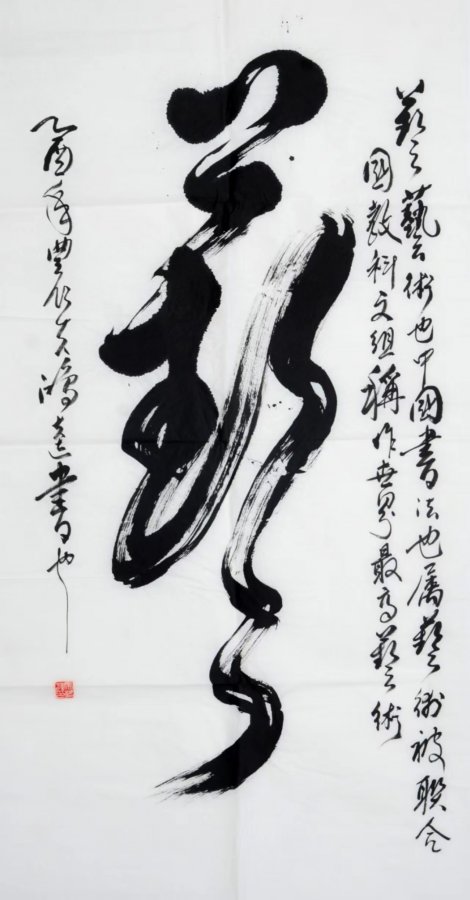 藝藝術也中國書法也屬藝術被聯合
國教科文組稱作世界最高藝術
藝
乙酉年豐鴻達書也